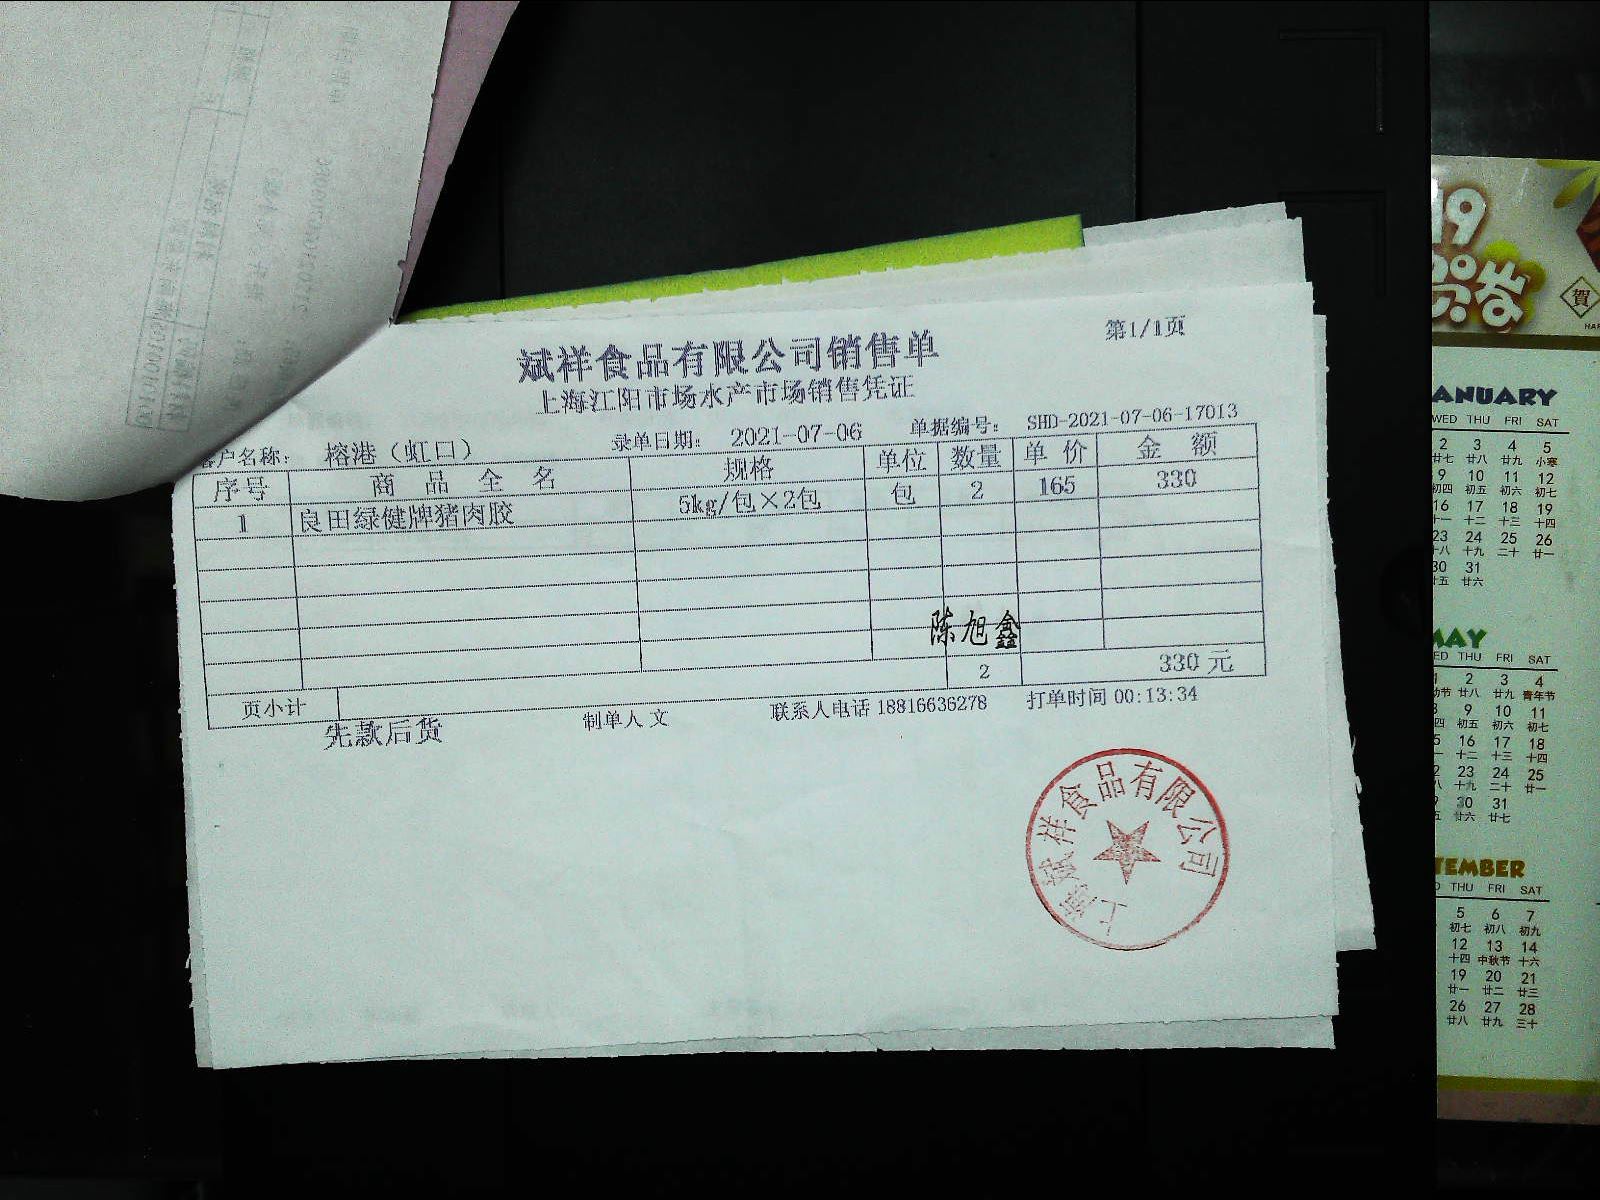 斌祥食品有限公司销售单
第1/1页
上海江阳市场水产市场销售凭证
客户名称： 榕港（虹口） 录单日期： 2021-07-06 单据编号： SHD-2021-07-06-17013
序号 商品全名 规格 单位 数量 单价 金额
1 良田绿健牌猪肉胶 5kg/包×2包 包 2 165 330
陈旭鑫
页小计 2 330元
先款后货 制单人 文 联系人电话 18816636278 打单时间 00:13:34
上海斌祥食品有限公司
19
賀
ANUARY
WED THU FRI SAT
2 3 4 5
廿七 廿八 廿九 小寒
9 10 11 12
初四 初五 初六 初七
16 17 18 19
十一 十二 十三 十四
23 24 25 26
十八 十九 二十 廿一
30 31
廿五 廿六
MAY
ED THU FRI SAT
1 2 3 4
廿八 廿九 青年节
9 10 11
初五 初六 初七
16 17 18
十二 十三 十四
23 24 25
十九 二十 廿一
30 31
廿六 廿七
TEMBER
THU FRI SAT
5 6 7
初七 初八 初九
12 13 14
十四 中秋节 十六
19 20 21
廿一 廿二 廿三
26 27 28
廿八 廿九 三十